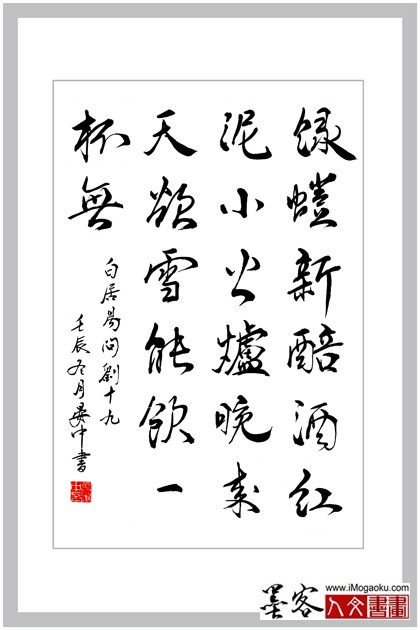 綠螘新醅酒紅
泥小火爐晚來
天欲雪能飲一
杯無
白居易問劉十九
壬辰冬月中書
墨客
www.iMogaoku.com
人文書畫